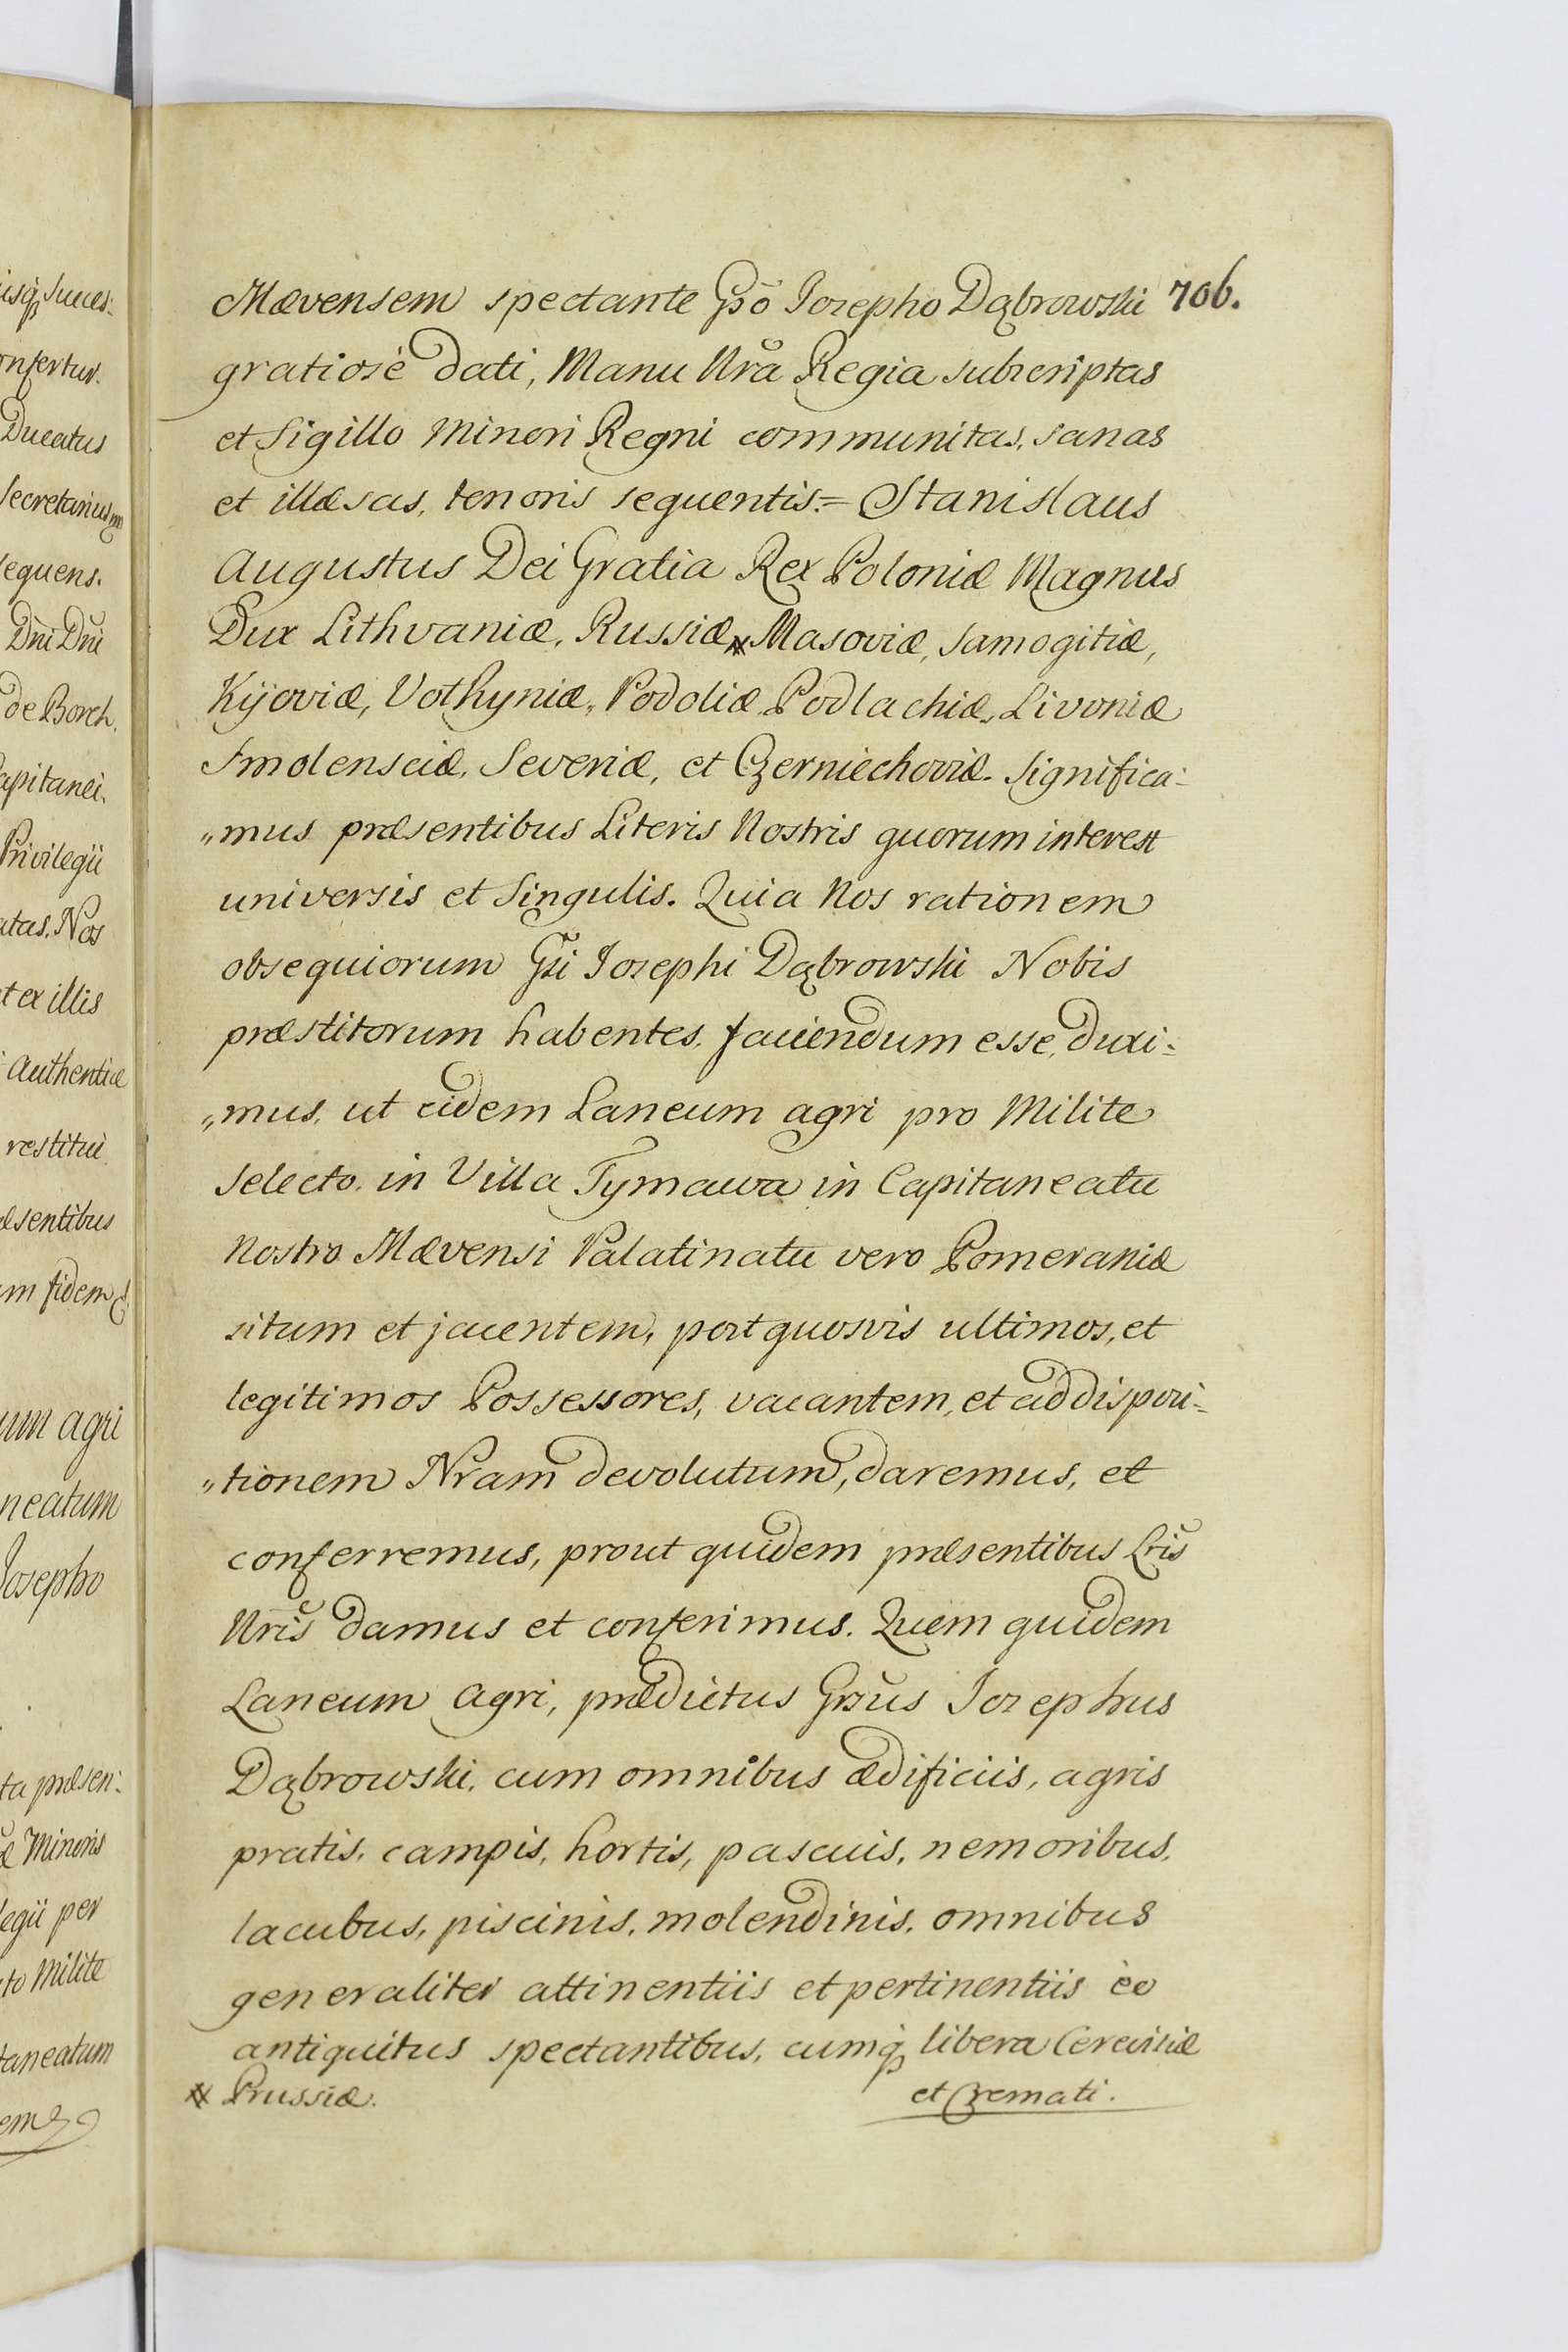 isq́ꝫ succes:
onfertur.
Ducatus
Secretarius
sequens.
Dni Dni
de Borch.
Capitanei.
Privilegii
atas. Nos
t ex illis
authentice
restitui
æsentibus
m fidem
um agri
neatum
Josepho
ta præsen:
æ Minoris
legii per
to Milite
taneatum
em
706.
Mævensem spectante Gso Iozepho Dąbrowski
gratiosè dati, Manu Nra Regia subscriptas
et Sigillo Minori Regni communitas, sanas
et illæsas, tenoris sequentis.= Stanislaus
Augustus Dei Gratia Rex Poloniæ Magnus
Dux Lithvaniæ, Russiæ ※ Masoviæ, Samogitiæ,
Kijoviæ, Volhyniæ, Podoliæ Podlachiæ, Livoniæ
Smolensciæ, Severiæ, et Czerniechoviæ. Significa:
„mus præsentibus Literis Nostris quorum interest
universis et Singulis. Quia Nos rationem
obsequiorum Gsi Iozephi Dąbrowski Nobis
præstitorum habentes, faciendum esse duxi:
„mus, ut eidem Laneum agri pro Milite
selecto in Villa Tymawa in Capitaneatu
Nostro Mævensi Palatinatu vero Pomeraniæ
situm et jacentem, post quosvis ultimos, et
legitimos Possessores, vacantem, et ad disposi:
„tionem Nram devolutum, daremus, et
conferremus, prout quidem præsentibus Lris
Nris damus et conferimus. Quem quidem
Laneum Agri, prædictus Gsus Iozephus
Dąbrowski, cum omnibus ædificiis, agris
pratis, campis, hortis, pascuis, nemoribus,
lacubus, piscinis, molendinis, omnibus
generaliter attinentiis et pertinentiis èo
antiquitus spectantibus, cumq́ꝫ libera Cerevisiæ
※ Prussiæ.
et Cremati.